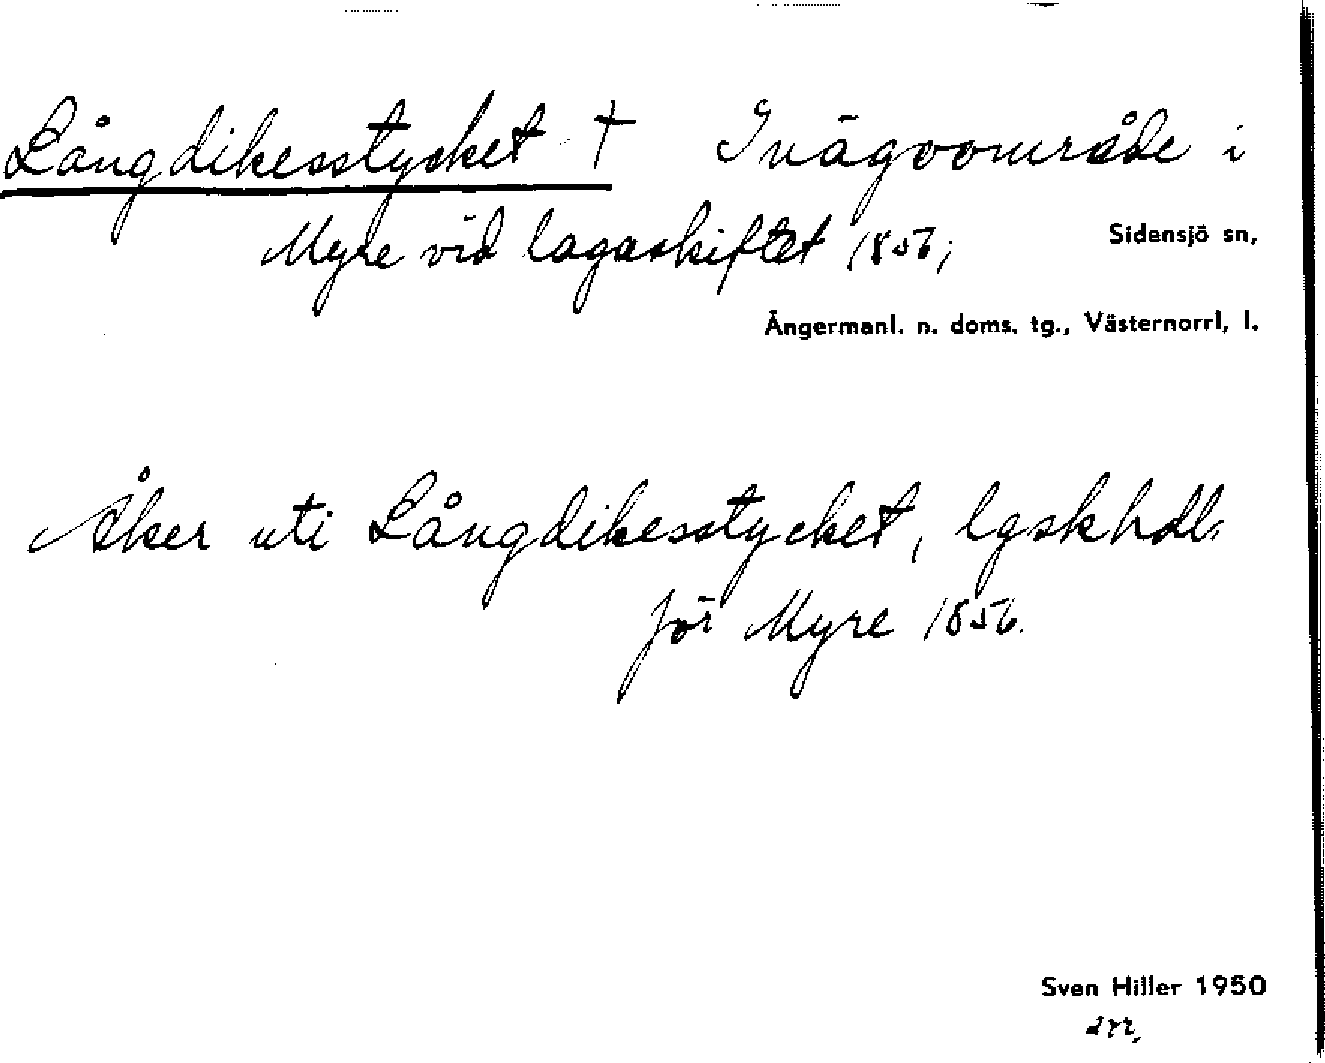 Långdikesstycket † Inägoområde i
Myre vid lagaskiftet 1856;
Sidensjö sn,
Ångermanl. n. doms. tg., Västernorrl. l.
Åker uti Långdikesstycket, lgskhdl.
för Myre 1856.
Sven Hiller 1950